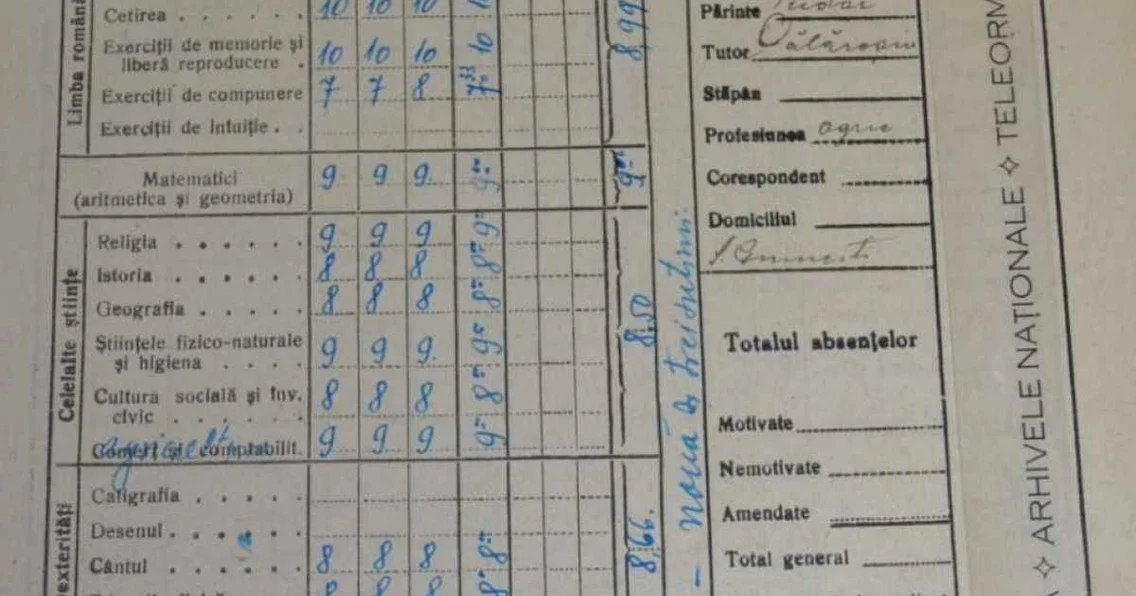 Limba română
Cetirea . . . . . . 10 10 10 8,99
Exerciții de memorie și
liberă reproducere . 10 10 10 10
Exerciții de compunere 7 7 8 7 33
Exerciții de Intuiție . .
Matematici
(aritmetica și geometria) 9 9 9. 9
Celelalte științe
Religia . . . . . . 9 9 9 9
Istoria . . . . . . 8 8 8 8
Geografia . . . . . 8 8 8 8 8,50
Științele fizico-naturale
și higiena . . . . 9 9 9. 9
Cultura socială și Inv.
civic . . . . . . 8 8 8 8
Comerț și comptabilit. 9 9 9. 9
Dexterități
Caligrafia . . . . .
Desenul . . . . . .
Cântul . . . . . . 8 8 8 8 8,66.
– nouă
Părinte Tudor
Tutor
Stăpân
Profesiunea agric
Corespondent
Domiciliul
Totalul absențelor
Motivate
Nemotivate
Amendate
Total general
✧ ARHIVELE NAȚIONALE ✧ TELEORM